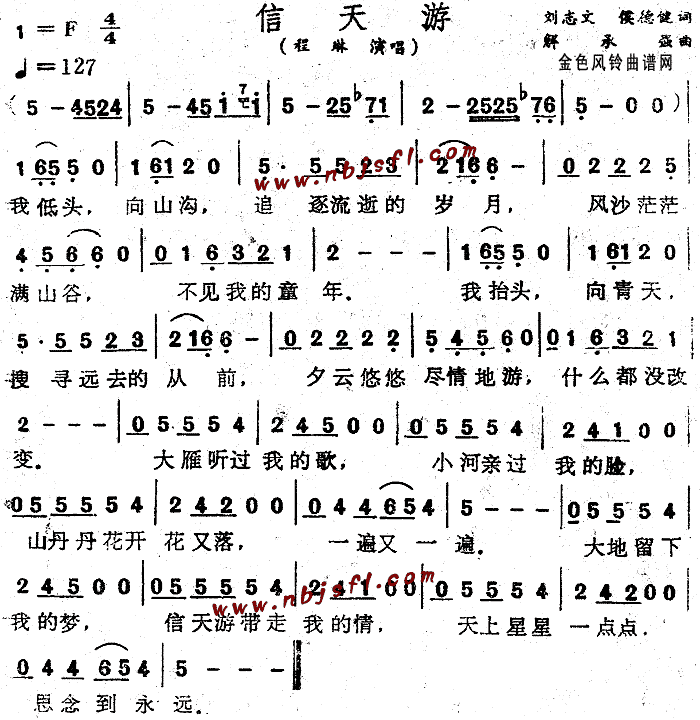 信天游
1=F 4/4
(程 琳 演唱)
刘志文 侯德健词
解 承 强曲
♩=127
金色风铃曲谱网
(5 - 4524 | 5 - 45i 7 i | 5 - 25♭71 | 2 - 2525♭76 | 5 - 0 0)
1 655 0 | 161 2 0 | 5· 5 5 2 3 | 2 166 - | 0 2 2 2 5 |
www.nbjsfl.com
我低头, 向山沟, 追 逐流逝的 岁 月, 风沙茫茫
4 5 6 6 0 | 0 1 6 3 2 1 | 2 - - - | 1 655 0 | 161 2 0 |
满山谷, 不见我的童 年. 我抬头, 向青天,
5· 5 5 2 3 | 2 166 - | 0 2 2 2 2 | 5 4 5 6 0 | 0 1 6 3 2 1 |
搜 寻远去的 从 前, 夕云悠悠 尽情地游, 什么都没改
2 - - - | 0 5 5 5 4 | 2 4 5 0 0 | 0 5 5 5 4 | 2 4 1 0 0 |
变. 大雁听过 我的歌, 小河亲过 我的脸,
0 5 5 5 5 4 | 2 4 2 0 0 | 0 4 4 6 5 4 | 5 - - - | 0 5 5 5 4 |
山丹丹花开 花又落, 一遍又 一 遍. 大地留下
2 4 5 0 0 | 0 5 5 5 5 4 | 2 4 1 0 0 | 0 5 5 5 4 | 2 4 2 0 0 |
www.nbjsfl.com
我的梦, 信天游带走 我的情, 天上星星 一点点.
0 4 4 6 5 4 | 5 - - - ‖
思念到永远.